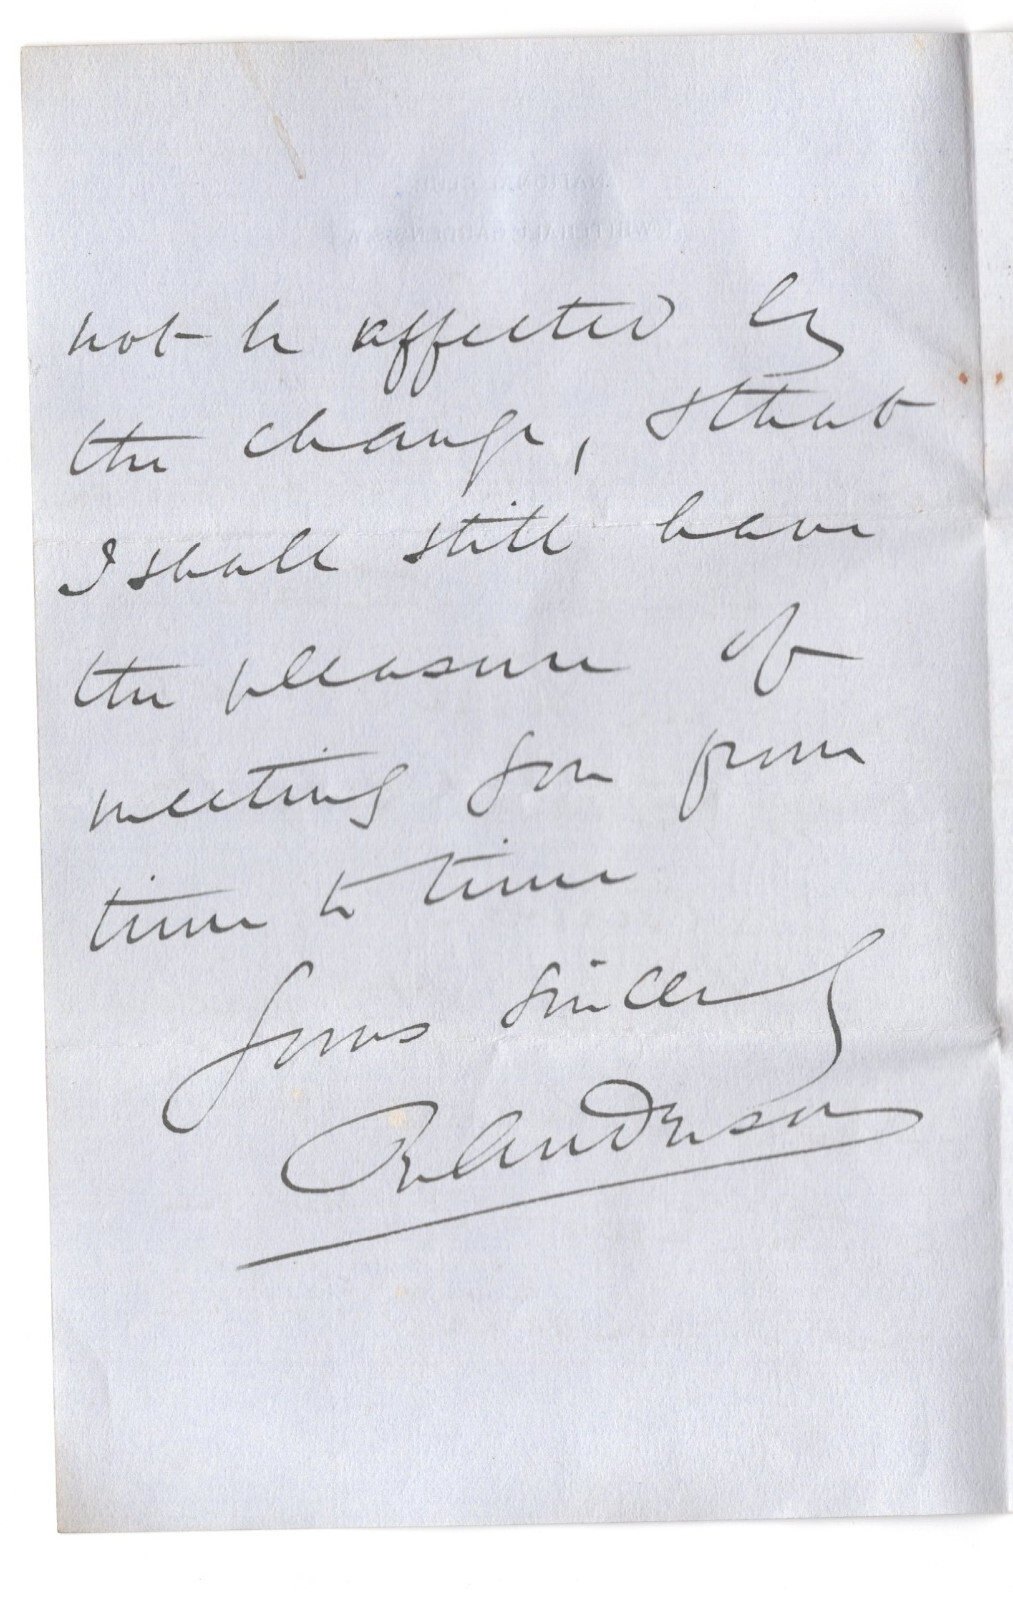 NATIONAL CLUB
WHITEHALL GARDENS S.W.
not be affected by
the change, & that
I shall still have
the pleasure of
meeting you from
time to time
Yours sincerely
R Anderson